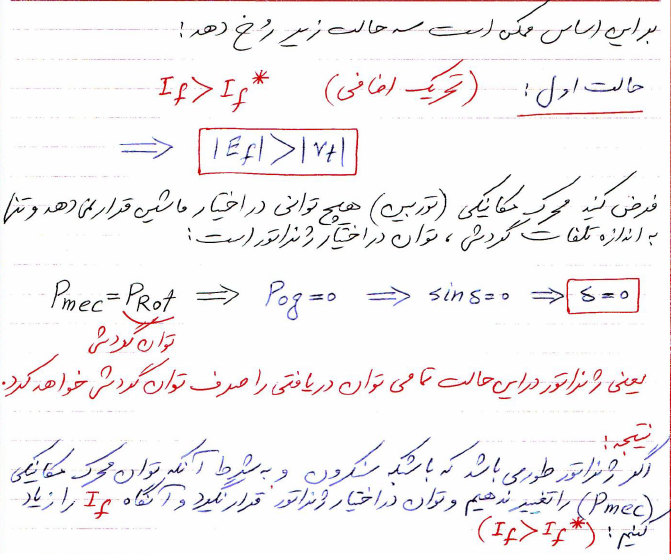 براین اساس ممکن است سه حالت زیر رخ دهد:
حالت اول: (تحریک اضافی) If > If*
⇒ |Ef| > |Vt|
فرض کنید محرک مکانیکی (توربین) هیچ توانی در اختیار ماشین قرار نمی دهد و تنها
به اندازه تلفات گردشی، توان در اختیار ژنراتور است:
Pmec = PRot ⇒ Pog = 0 ⇒ sinδ = 0 ⇒ δ = 0
توان گردش
یعنی ژنراتور در این حالت تمامی توان دریافتی را صرف توان گردش خواهد کرد.
نتیجه:
اگر ژنراتور طوری باشد که با شبکه سنکرون و به شرط آنکه توان محرک مکانیکی
(Pmec) را تغییر ندهیم و توان در اختیار ژنراتور قرار نگیرد و آنگاه If را زیاد
کنیم: (If > If*)